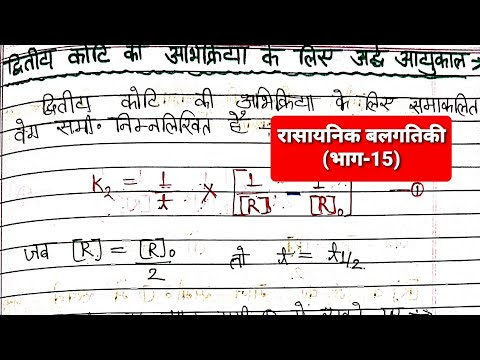 द्वितीय कोटि की अभिक्रिया के लिए अर्द्ध आयुकाल
द्वितीय कोटि की अभिक्रिया के लिए समाकलित
वेग समी. निम्नलिखित है
रासायनिक बलगतिकी
(भाग-15)
K₂ = 1/t × [1/[R] - 1/[R]₀] —①
जब [R] = [R]₀/2 तो t = t1/2